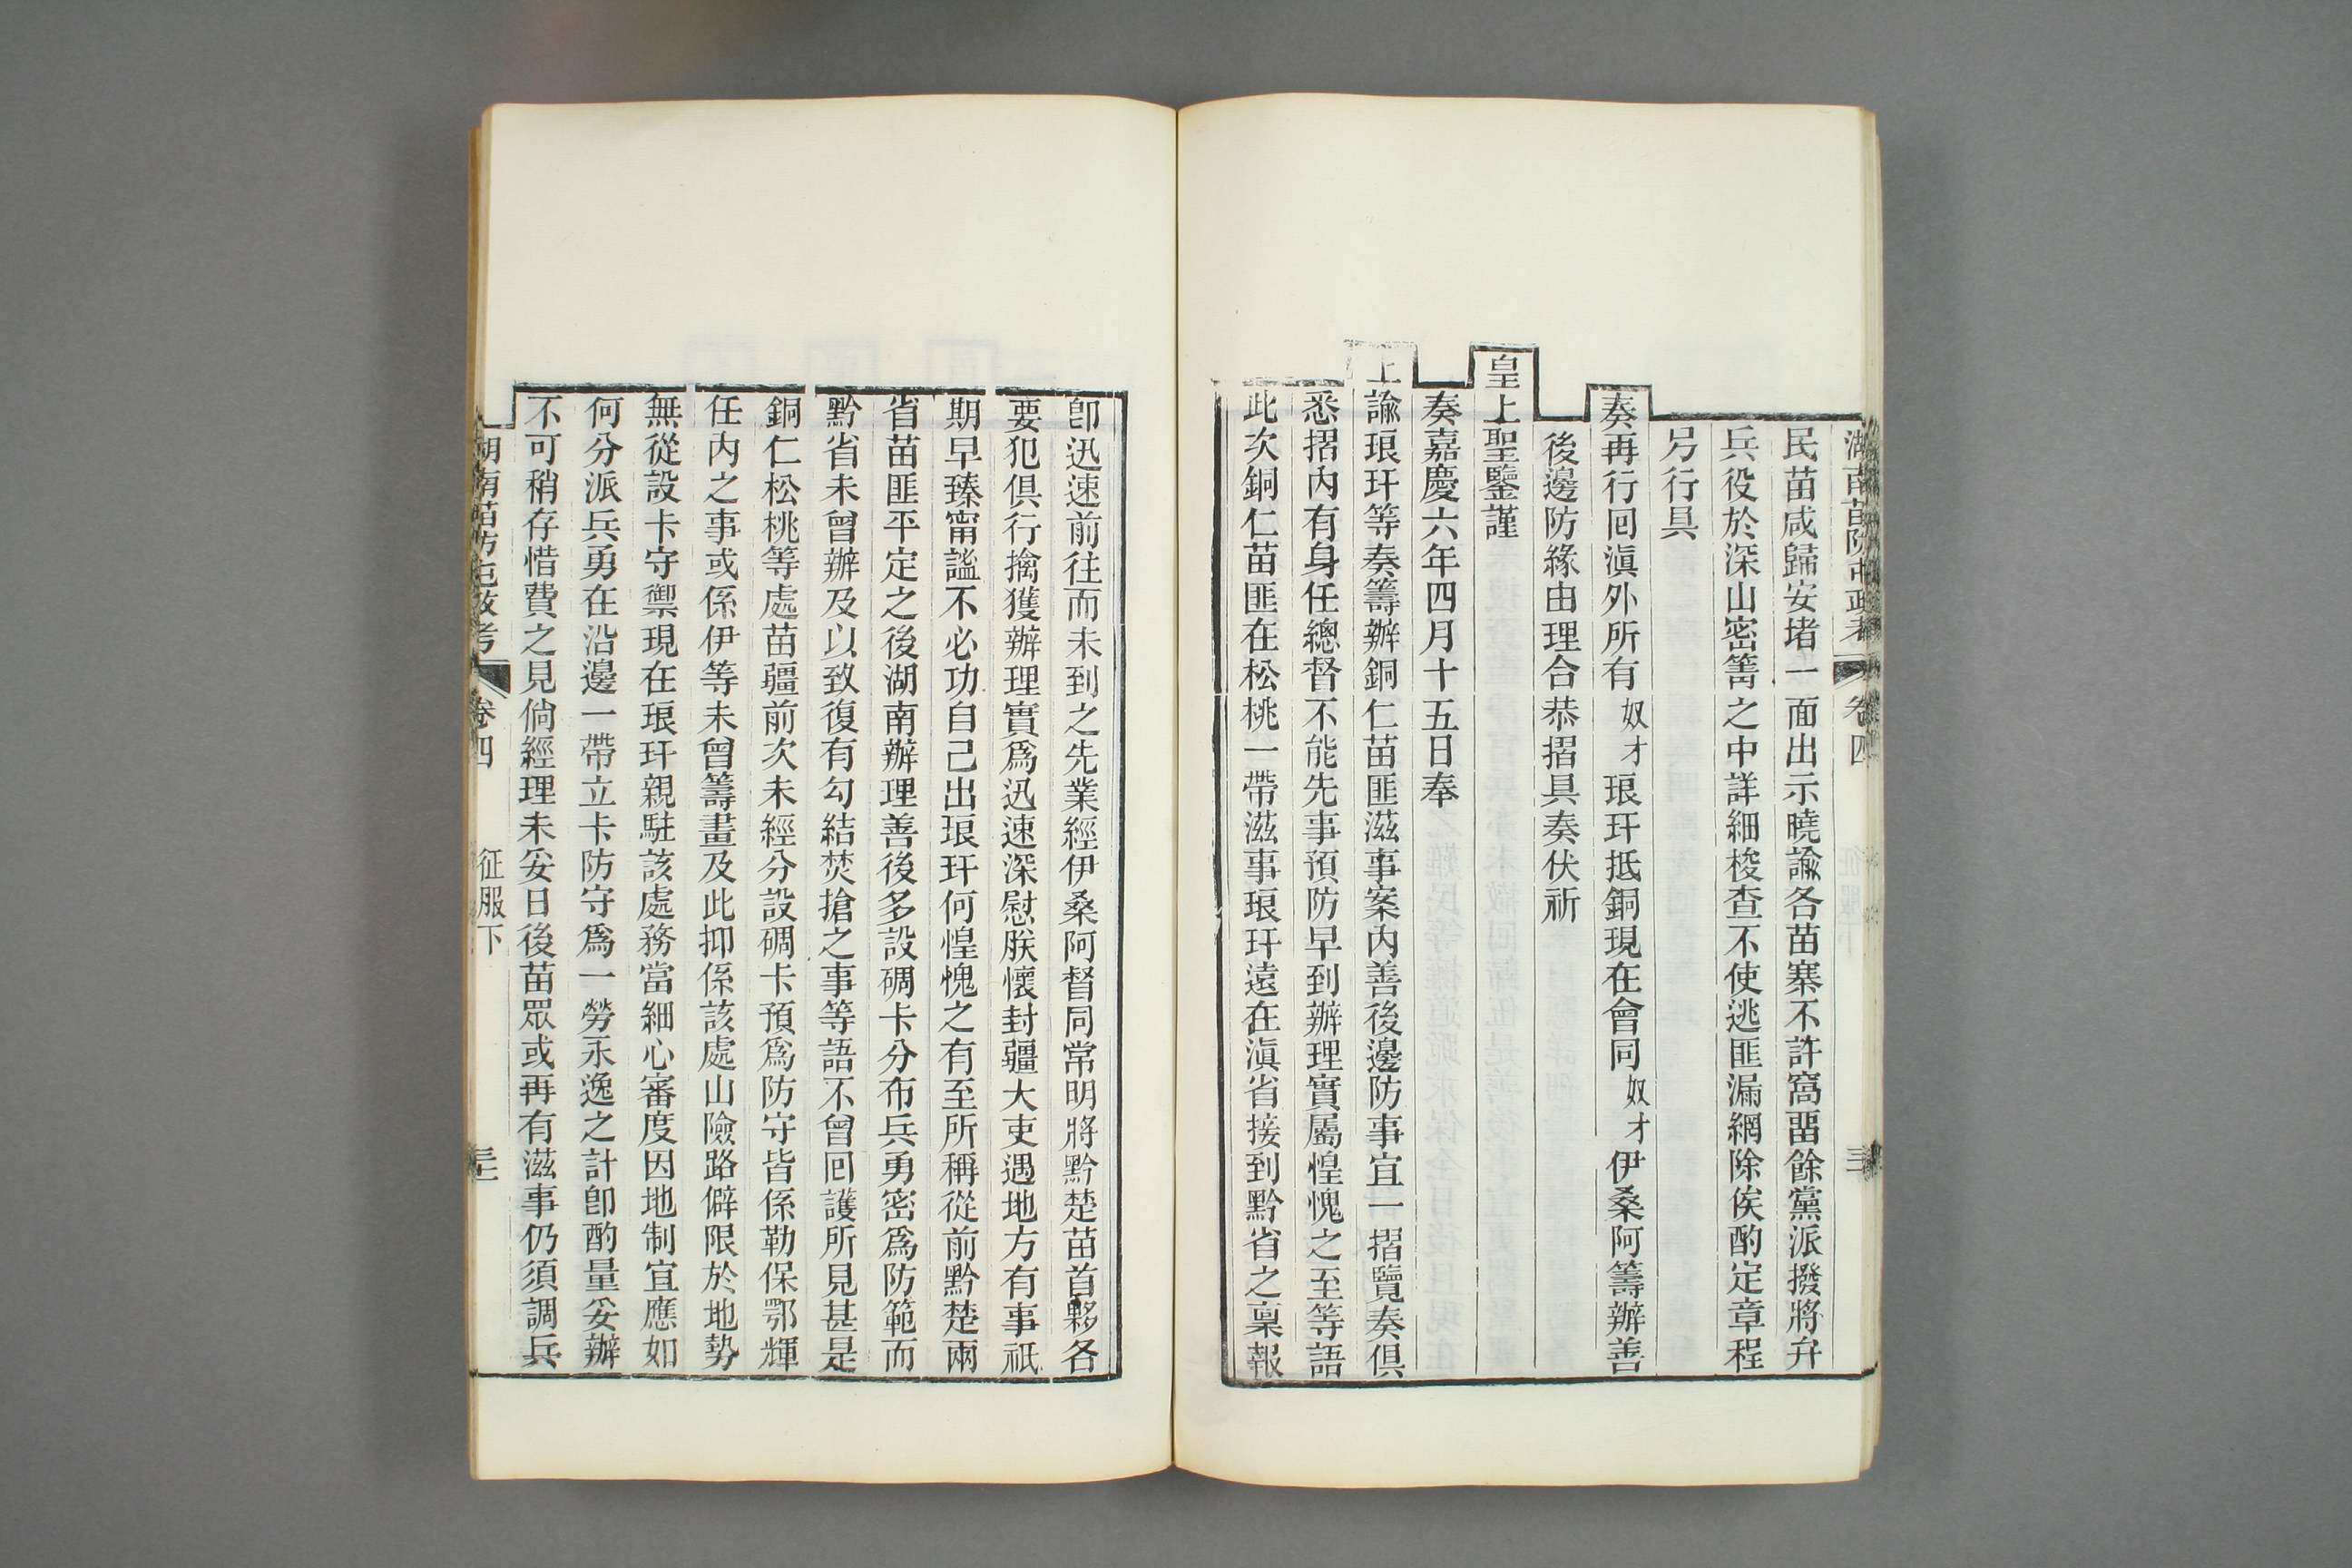 湖南苗防屯政考 卷四
民苗咸歸安堵一面出示曉諭各苗寨不許窩畱餘黨派撥將弁
兵役於深山密箐之中詳細梭查不使逃匪漏網除俟酌定章程
另行具
奏再行囘滇外所有奴才琅玕抵銅現在會同奴才伊桑阿籌辦善
後邊防緣由理合恭摺具奏伏祈
皇上聖鑒謹
奏嘉慶六年四月十五日奉
上諭琅玕等奏籌辦銅仁苗匪滋事案內善後邊防事宜一摺覽奏俱
悉摺內有身任總督不能先事預防早到辦理實屬惶愧之至等語
此次銅仁苗匪在松桃一帶滋事琅玕遠在滇省接到黔省之稟報
卽迅速前往而未到之先業經伊桑阿督同常明將黔楚苗首夥各
要犯俱行擒獲辦理實爲迅速深慰朕懷封疆大吏遇地方有事祇
期早臻甯謐不必功自己出琅玕何惶愧之有至所稱從前黔楚兩
省苗匪平定之後湖南辦理善後多設碉卡分布兵勇密爲防範而
黔省未曾辦及以致復有勾結焚搶之事等語不曾囘護所見甚是
銅仁松桃等處苗疆前次未經分設碉卡預爲防守皆係勒保鄂輝
任內之事或係伊等未曾籌畫及此抑係該處山險路僻限於地勢
無從設卡守禦現在琅玕親駐該處務當細心審度因地制宜應如
何分派兵勇在沿邊一帶立卡防守爲一勞永逸之計卽酌量妥辦
不可稍存惜費之見倘經理未妥日後苗眾或再有滋事仍須調兵
湖南苗防屯政考 卷四 征服下